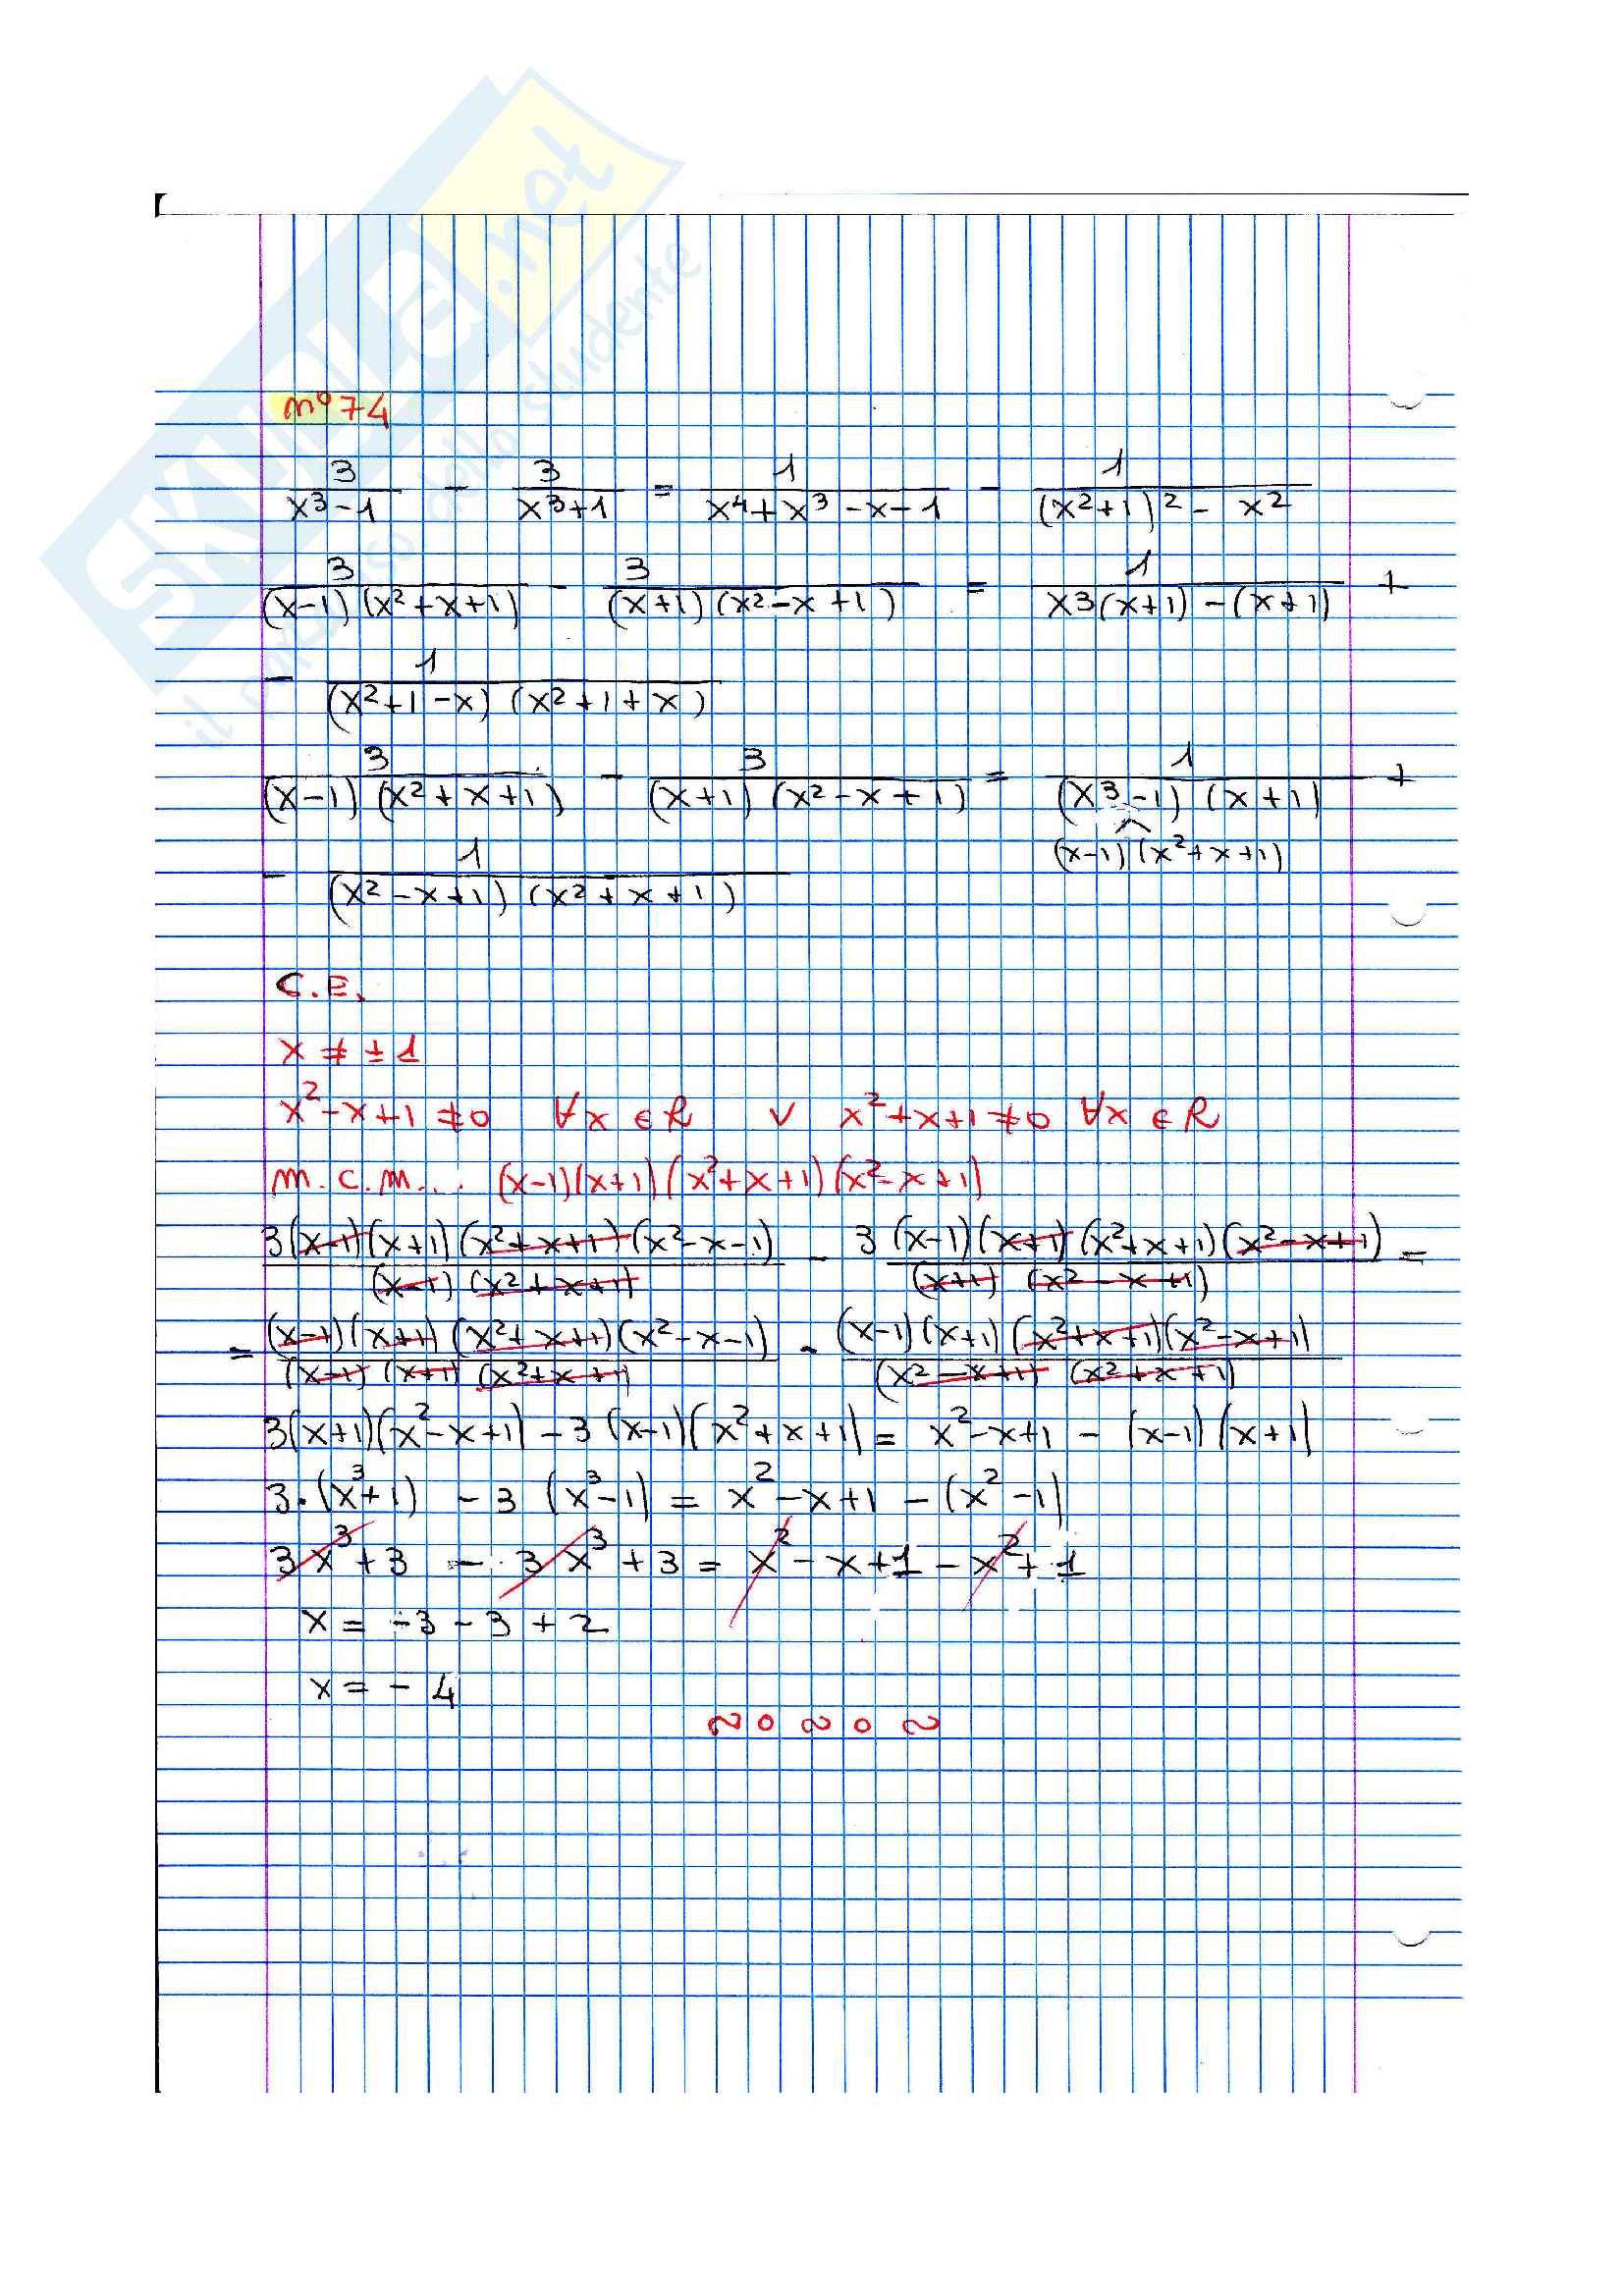 SKUOLA.net
il paradiso dello studente
n° 74
3/(x³-1) - 3/(x³+1) = 1/(x⁴+x³-x-1) - 1/((x²+1)²-x²)
3/((x-1)(x²+x+1)) - 3/((x+1)(x²-x+1)) = 1/(x3(x+1)-(x+1)) +
- 1/((x²+1-x)(x²+1+x))
3/((x-1)(x²+x+1)) - 3/((x+1)(x²-x+1)) = 1/((x³-1)(x+1)) +
(x-1)(x²+x+1)
- 1/((x²-x+1)(x²+x+1))
C.E.
x ≠ ±1
x²-x+1 ≠0 ∀x ∈ R v x²+x+1 ≠0 ∀x ∈ R
m.c.m... (x-1)(x+1)(x²+x+1)(x²-x+1)
3(x-1)(x+1)(x²+x+1)(x²-x-1)/((x-1)(x²+x+1)) - 3(x-1)(x+1)(x²+x+1)(x²-x+1)/((x+1)(x²-x+1)) =
= (x-1)(x+1)(x²+x+1)(x²-x-1)/((x-1)(x+1)(x²+x+1)) - (x-1)(x+1)(x²+x+1)(x²-x+1)/((x²-x+1)(x²+x+1))
3(x+1)(x²-x+1) - 3(x-1)(x²+x+1) = x²-x+1 - (x-1)(x+1)
3·(x³+1) - 3(x³-1) = x²-x+1 - (x²-1)
3x³+3 - 3x³+3 = x²-x+1-x²+1
x = -3-3+2
x = -4